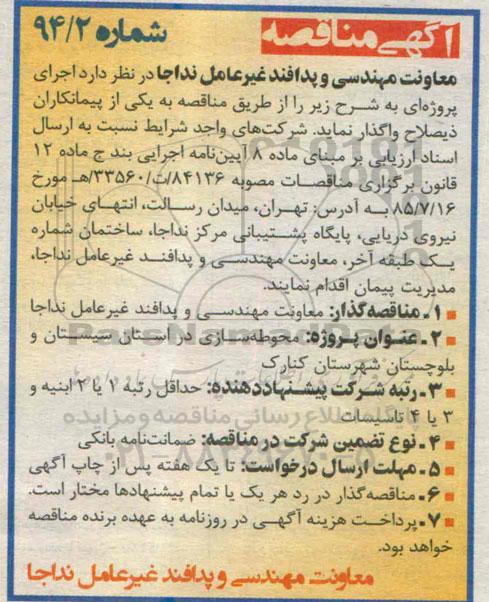 آگهی مناقصه
شماره ۹۴/۲
معاونت مهندسی و پدافند غیرعامل نداجا در نظر دارد اجرای
پروژه‌ای به شرح زیر را از طریق مناقصه به یکی از پیمانکاران
ذیصلاح واگذار نماید. شرکت‌های واجد شرایط نسبت به ارسال
اسناد ارزیابی بر مبنای ماده ۸ آیین‌نامه اجرایی بند ج ماده ۱۲
قانون برگزاری مناقصات مصوبه ۸۴۱۳۶/ت/۳۳۵۶۰هـ مورخ
۸۵/۷/۱۶ به آدرس: تهران، میدان رسالت، انتهای خیابان
نیروی دریایی، پایگاه پشتیبانی مرکز نداجا، ساختمان شماره
یک، طبقه آخر، معاونت مهندسی و پدافند غیرعامل نداجا،
مدیریت پیمان اقدام نمایند.
۱ـ مناقصه‌گذار: معاونت مهندسی و پدافند غیرعامل نداجا
۲ـ عنوان پروژه: محوطه‌سازی در استان سیستان و
بلوچستان شهرستان کنارک
۳ـ رتبه شرکت پیشنهاددهنده: حداقل رتبه ۱ یا ۲ ابنیه و
۳ یا ۴ تاسیسات
۴ـ نوع تضمین شرکت در مناقصه: ضمانت‌نامه بانکی
۵ـ مهلت ارسال درخواست: تا یک هفته پس از چاپ آگهی
۶ـ مناقصه‌گذار در رد هر یک یا تمام پیشنهادها مختار است.
۷ـ پرداخت هزینه آگهی در روزنامه به عهده برنده مناقصه
خواهد بود.
معاونت مهندسی و پدافند غیرعامل نداجا
ParsNamadData
پایگاه اطلاع رسانی مناقصه و مزایده